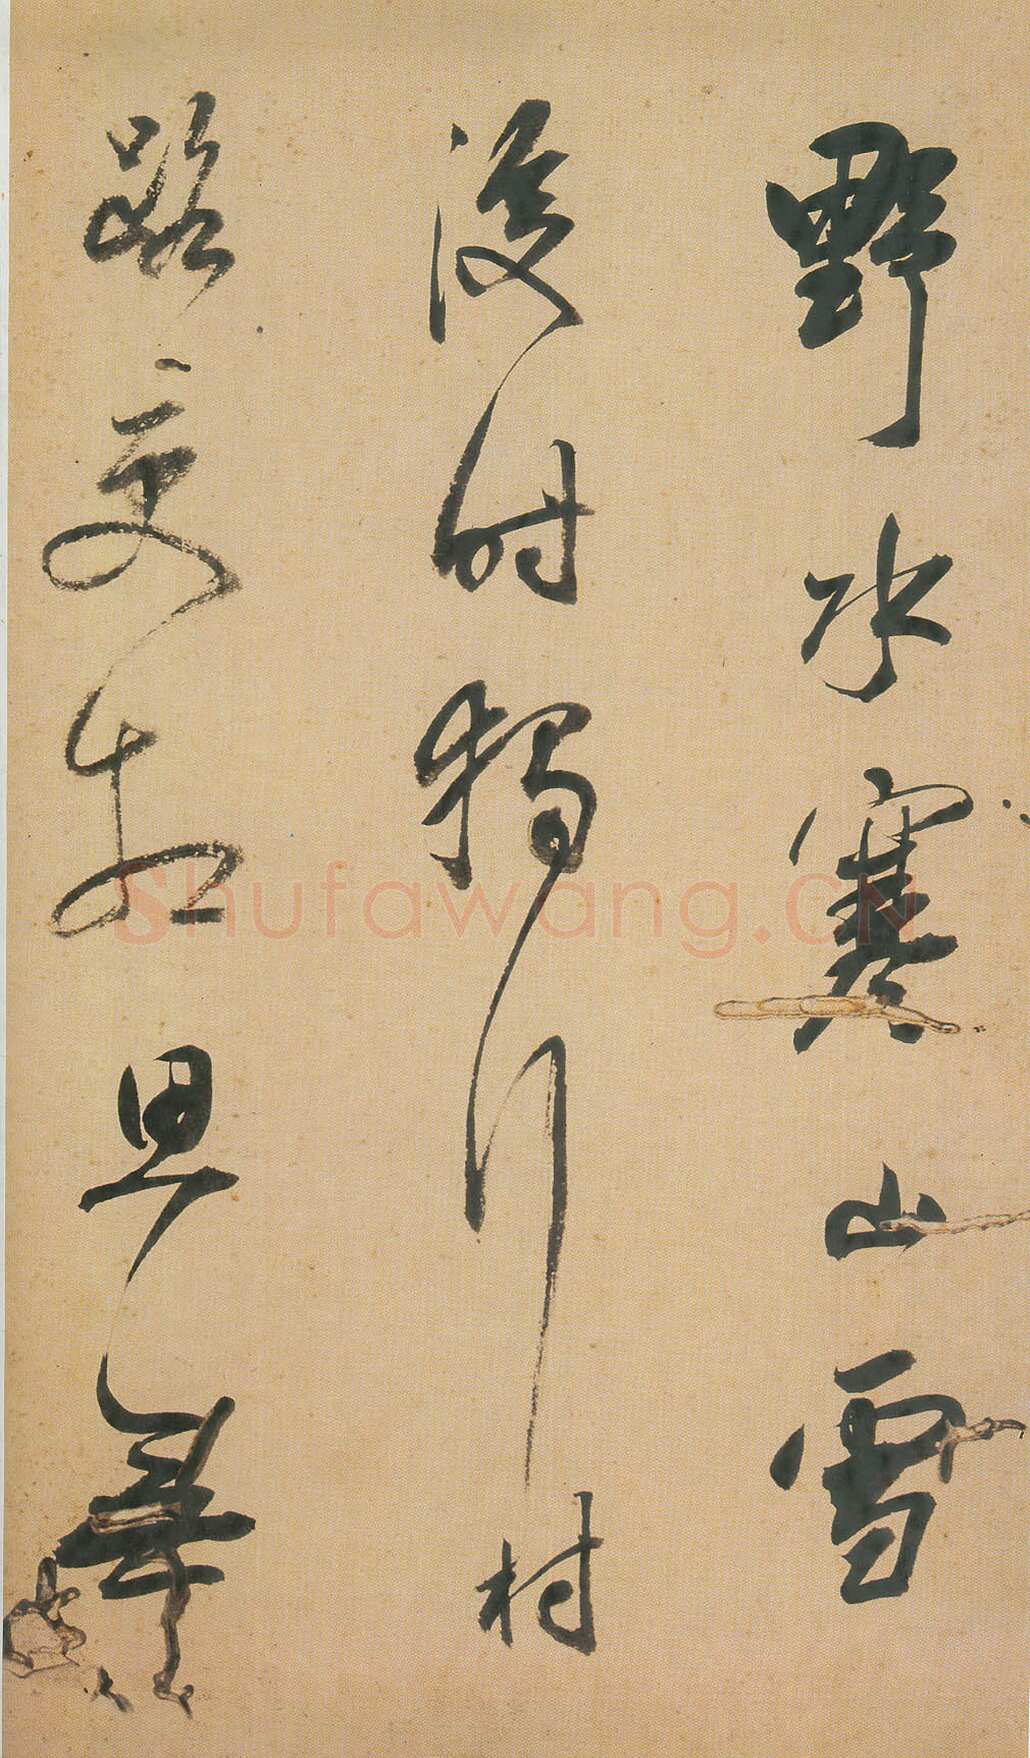 野水寒山雪
後時獨行村
路更相思無
Shufawang.CN